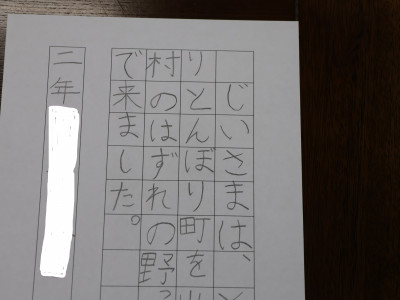 じいさまは、
りとんぼり町を
村のはずれの野
で来ました。
二年